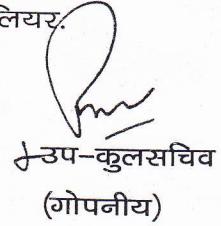 लियर.
उप-कुलसचिव
(गोपनीय)